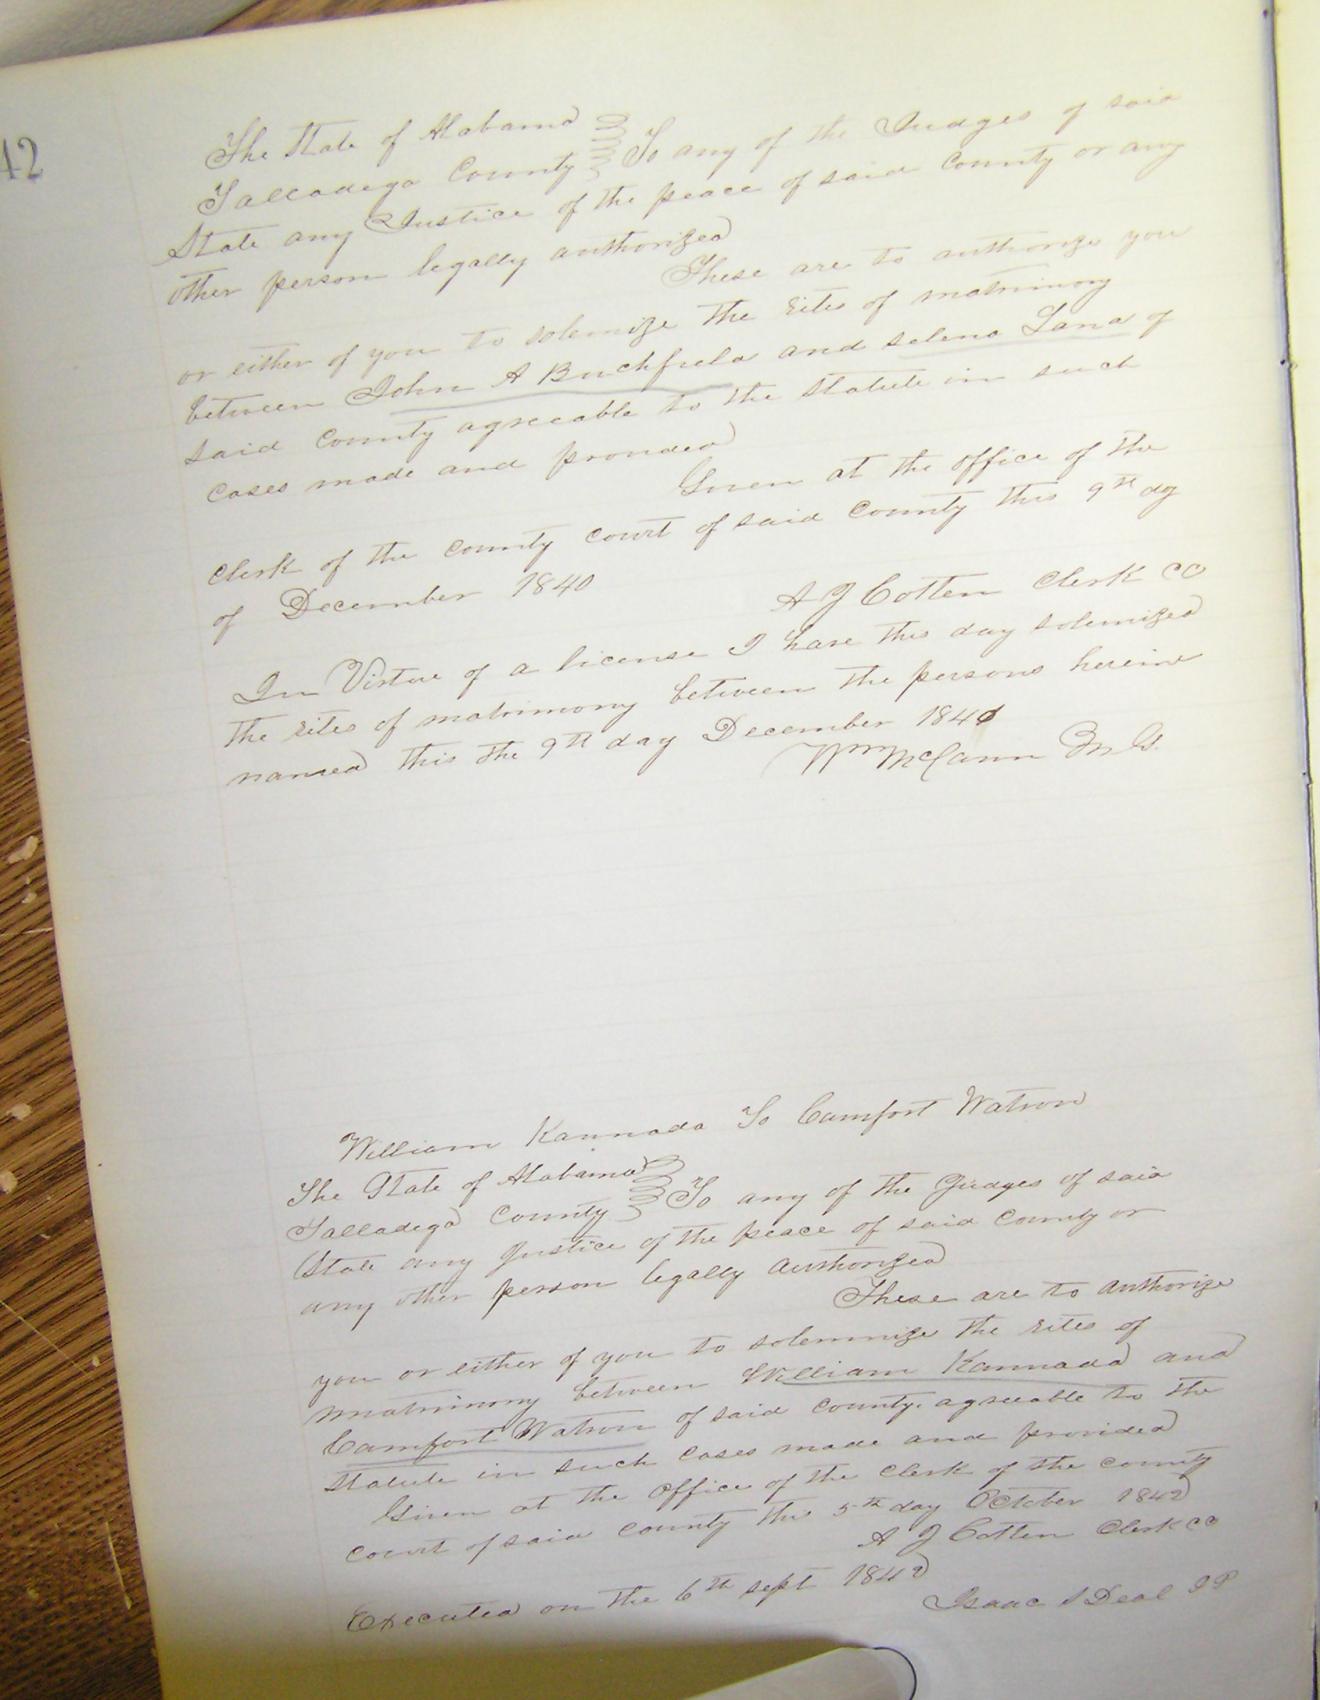 42
The State of Alabama
Talladega County To any of the Judges of said
State any Justice of the peace of said County or any
other person legally authorized
These are to authorize you
or either of you to solemize the rites of matrimony
between John A Buchfield and Selena Lana of
said County agreeable to the Statute in such
cases made and provided
Given at the office of the
Clerk of the County Court of said County this 9th dy
of December 1840
A J Cotten Clerk CC
In Virtue of a license I have this day solemized
the rites of matrimony between the persons herein
named this the 9th day December 1840
Wm McCann M.G.
William Kannada To Comfort Watson
The State of Alabama
Talladega County To any of the Judges of said
State any Justice of the peace of said County or
any other person legally authorized
These are to authorize
you or either of you to solemnize the rites of
matrimony between William Kannada and
Comfort Watson of said County, agreeable to the
Statute in such cases made and provided
Given at the office of the Clerk of the County
Court of said County this 5th day October 1842
A J Cotten Clerk CC
Executed on the 6th Sept 1842
Isaac S Deal JP